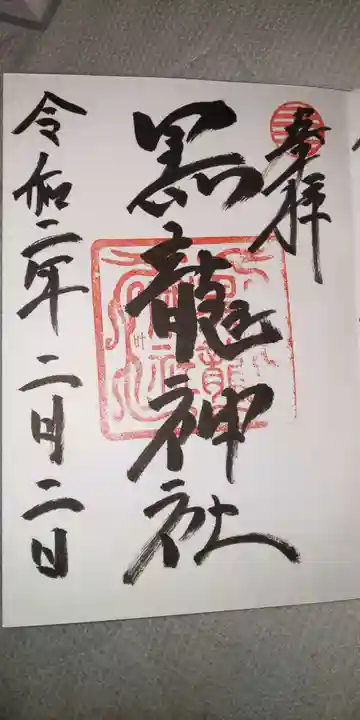 奉拝
黒龍神社
令和二年 二月二日